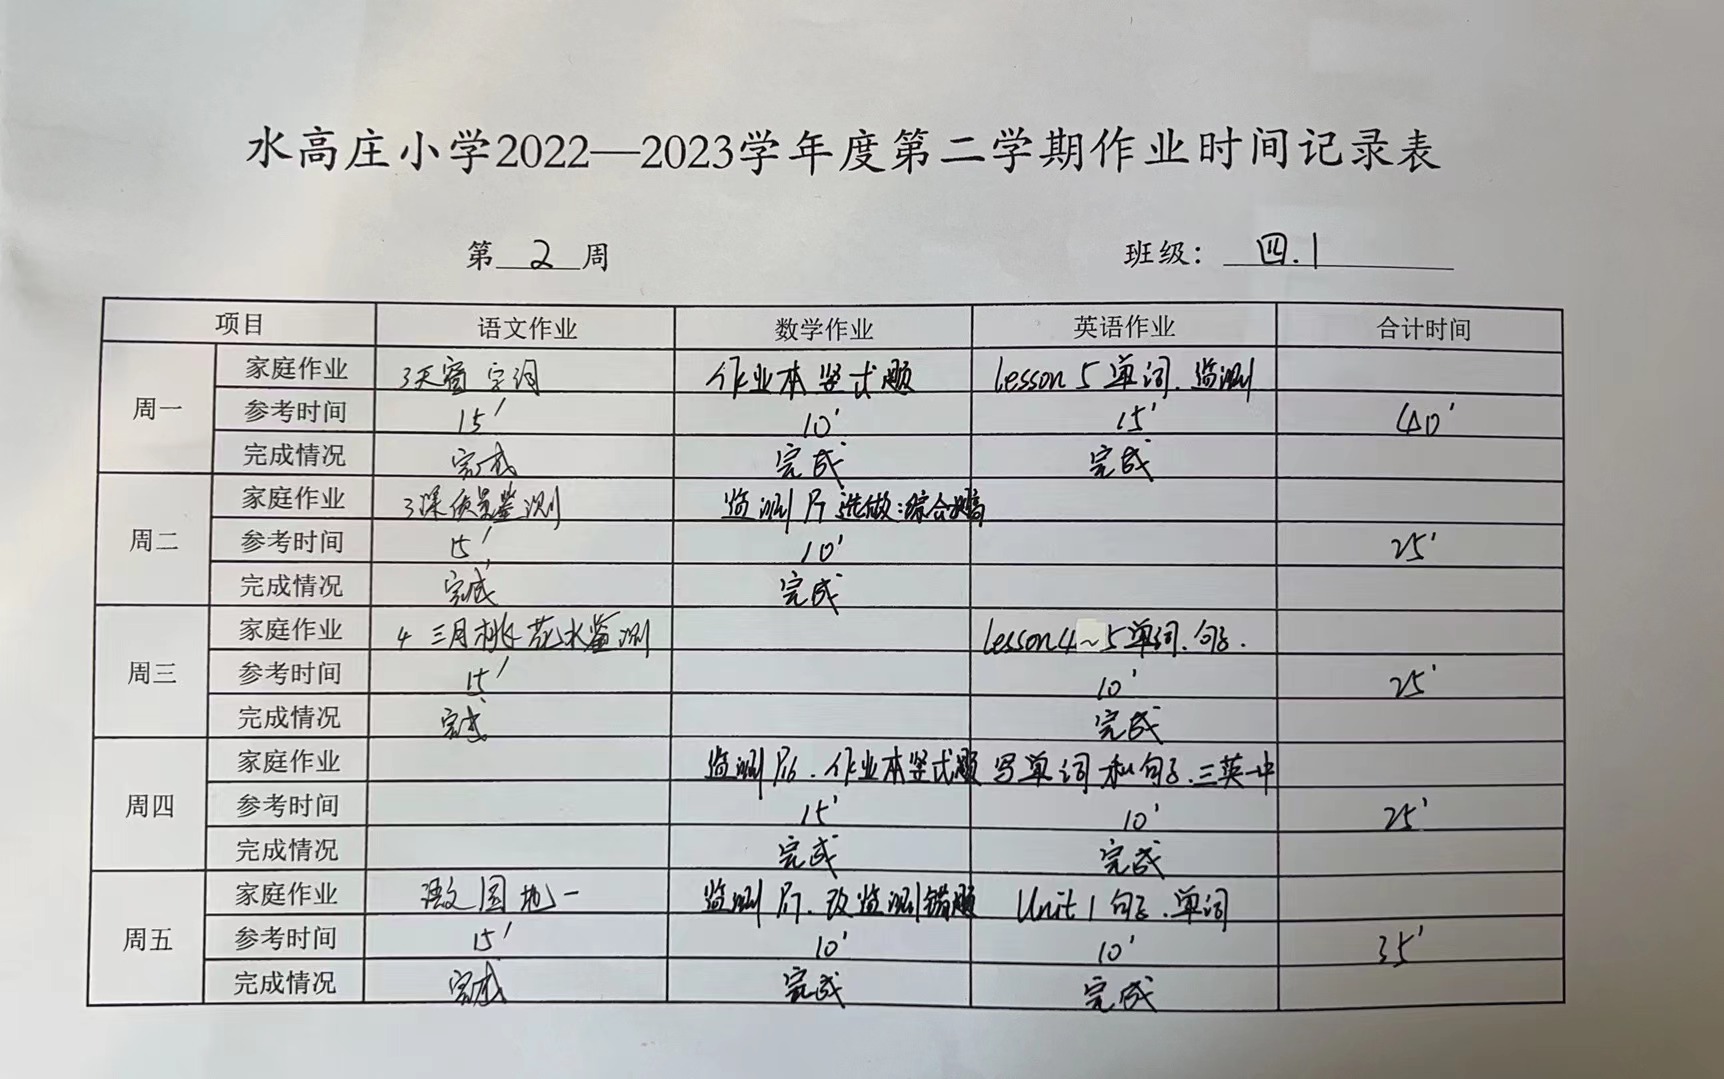 水高庄小学2022—2023学年度第二学期作业时间记录表
第 2 周 班级： 四.1
项目 语文作业 数学作业 英语作业 合计时间
周一
家庭作业 3天窗 字词 作业本竖式题 lesson 5 单词、监测
参考时间 15′ 10′ 15′ 40′
完成情况 完成 完成 完成
周二
家庭作业 3课质量鉴测 监测 选做:综合
参考时间 15′ 10′ 25′
完成情况 完成 完成
周三
家庭作业 4 三月桃花水鉴测 lesson4~5单词、句子.
参考时间 15′ 10′ 25′
完成情况 完成 完成
周四
家庭作业 监测P16.作业本竖式题 写单词和句子.三英一中
参考时间 15′ 10′ 25′
完成情况 完成 完成
周五
家庭作业 语文园地一 监测 改监测错题 Unit 1 句子.单词
参考时间 15′ 10′ 10′ 35′
完成情况 完成 完成 完成